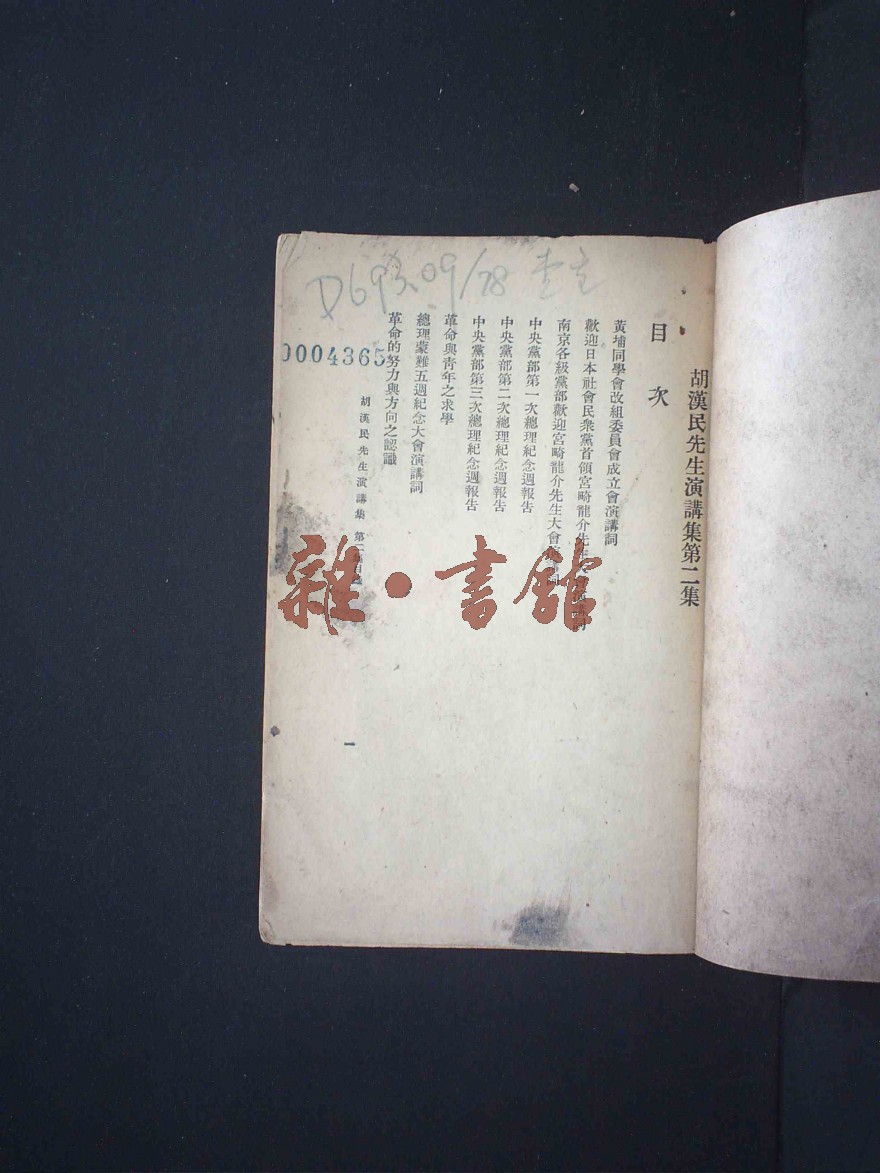 胡漢民先生演講集第二集
目次
黃埔同學會改組委員會成立會演講詞
歡迎日本社會民衆黨首領宮崎龍介先生
南京各級黨部歡迎宮崎龍介先生大會
中央黨部第一次總理紀念週報告
中央黨部第二次總理紀念週報告
中央黨部第三次總理紀念週報告
革命與靑年之求學
總理蒙難五週紀念大會演講詞
革命的努力與方向之認識
胡漢民先生演講集 第二集
一
D693.09/78
0004365
雜·書館